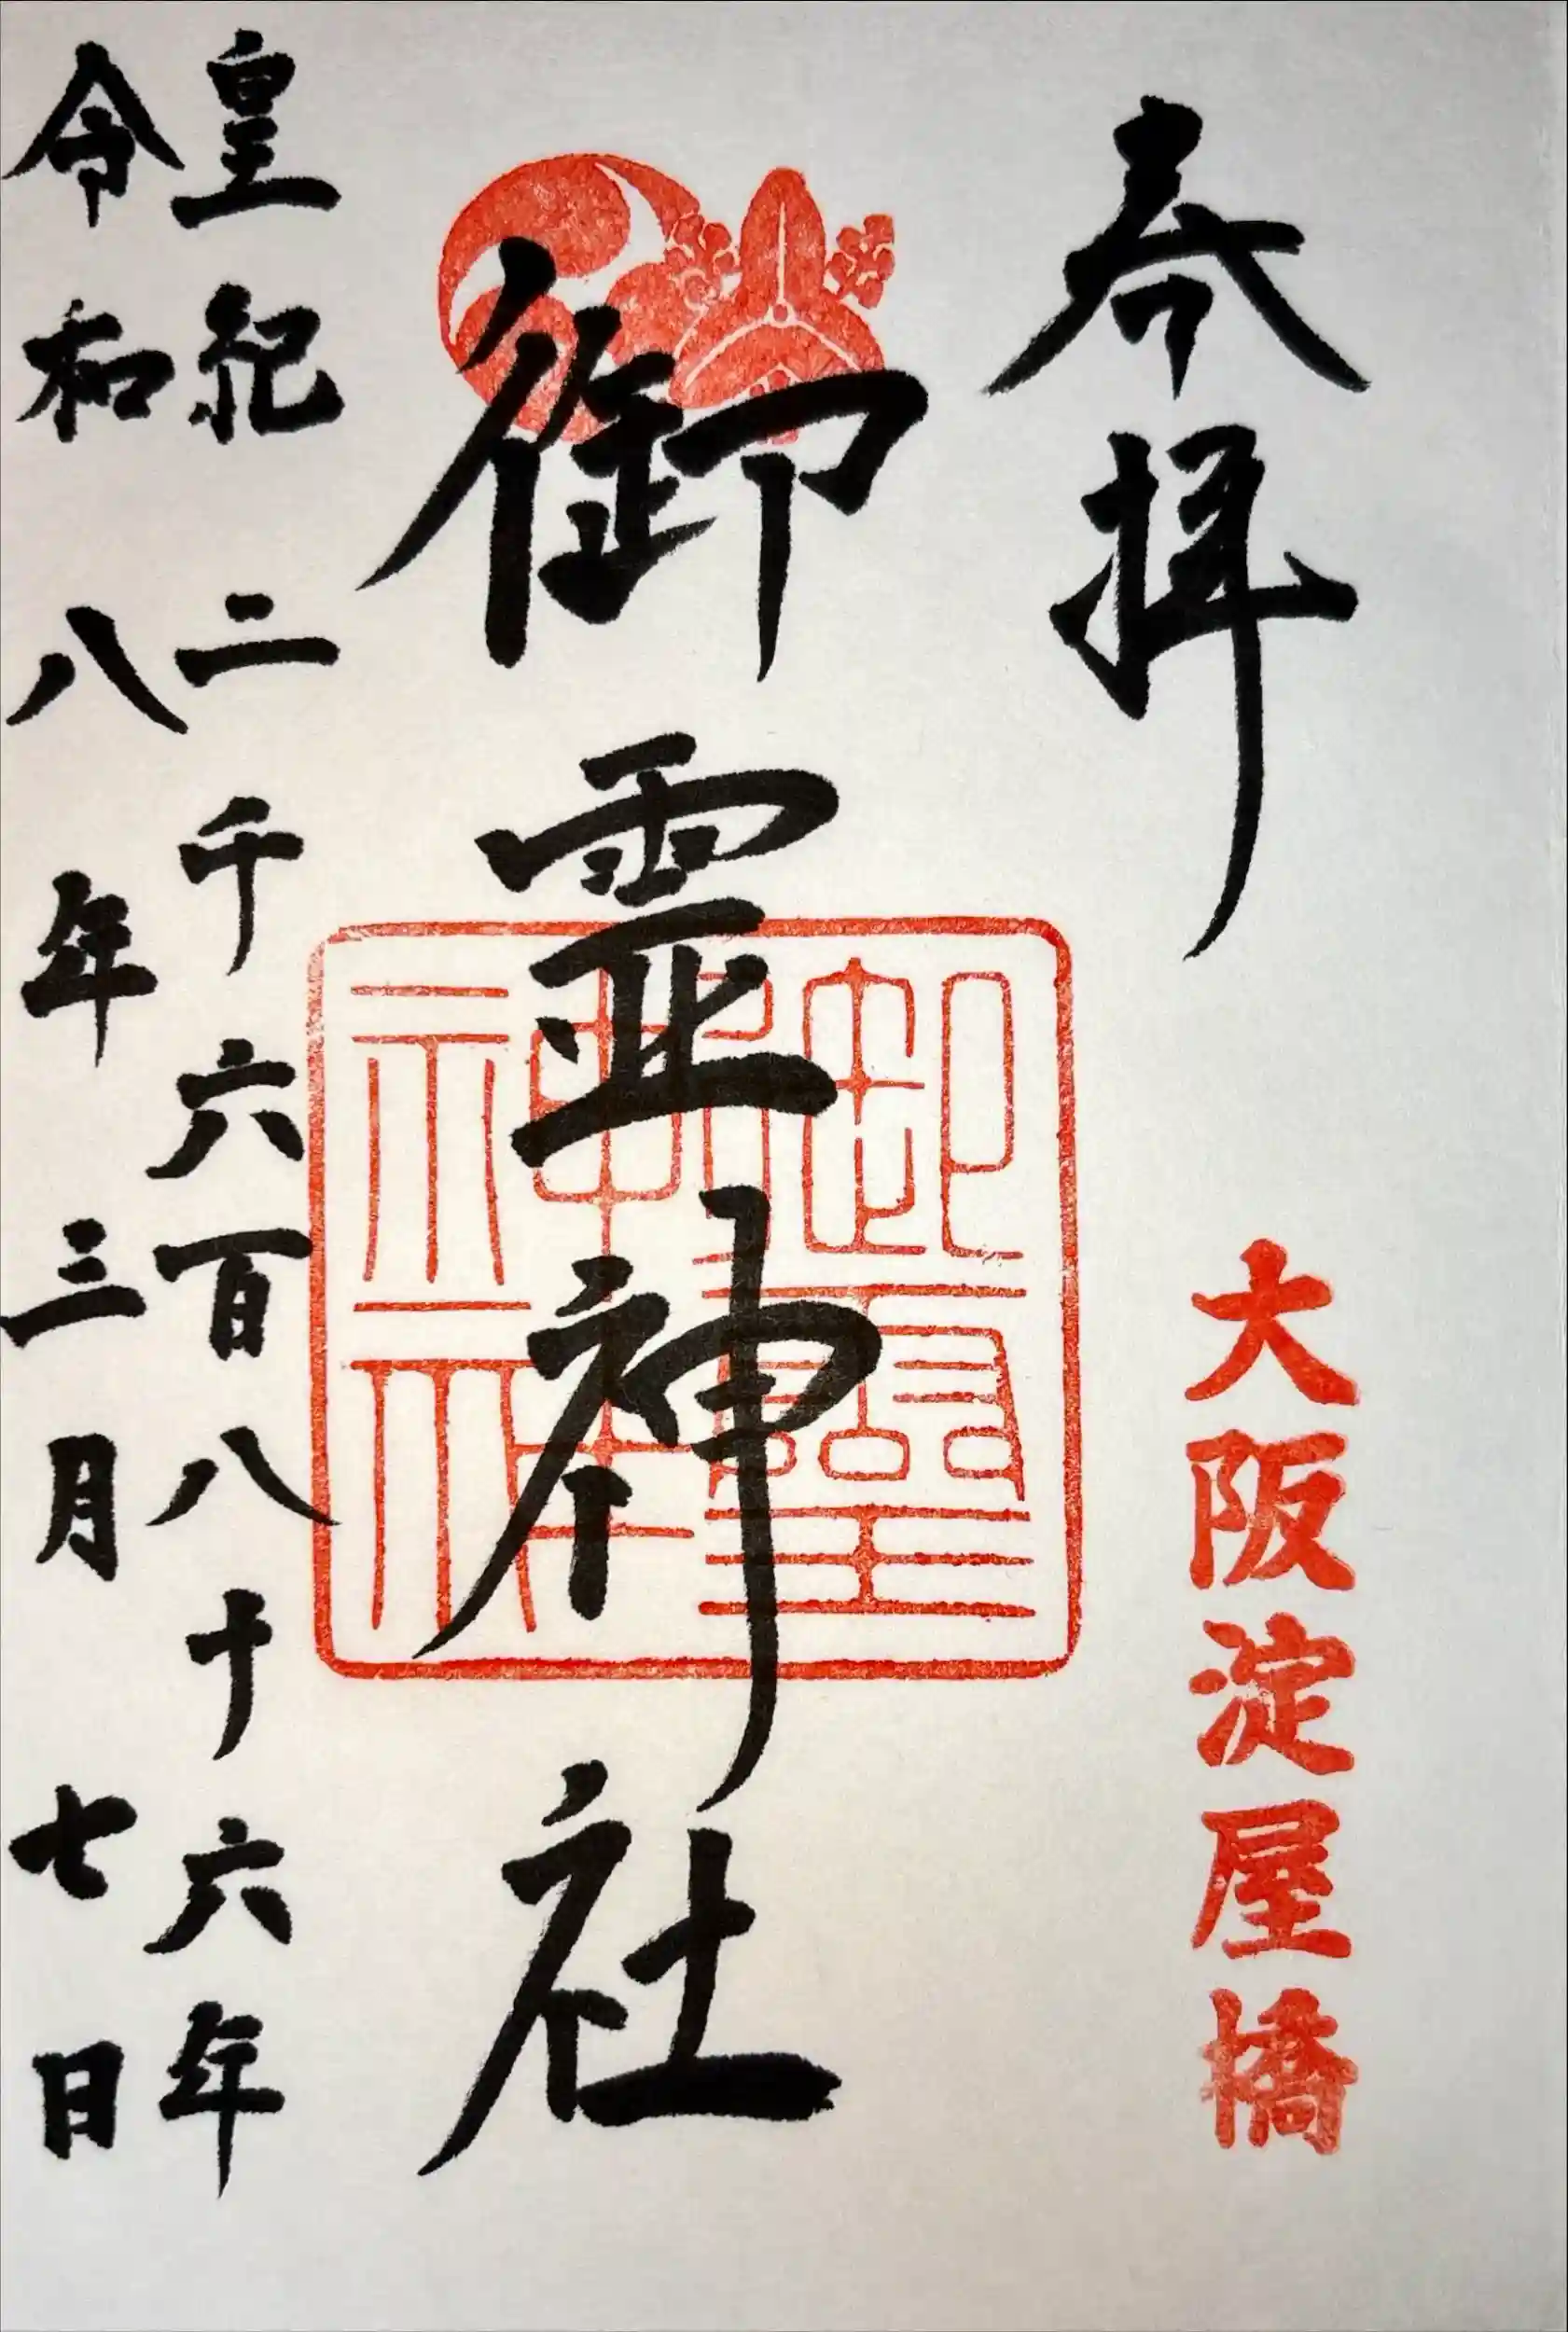 奉拝
大阪淀屋橋
御霊神社
御靈神社
皇紀二千六百八十六年
令和八年三月七日